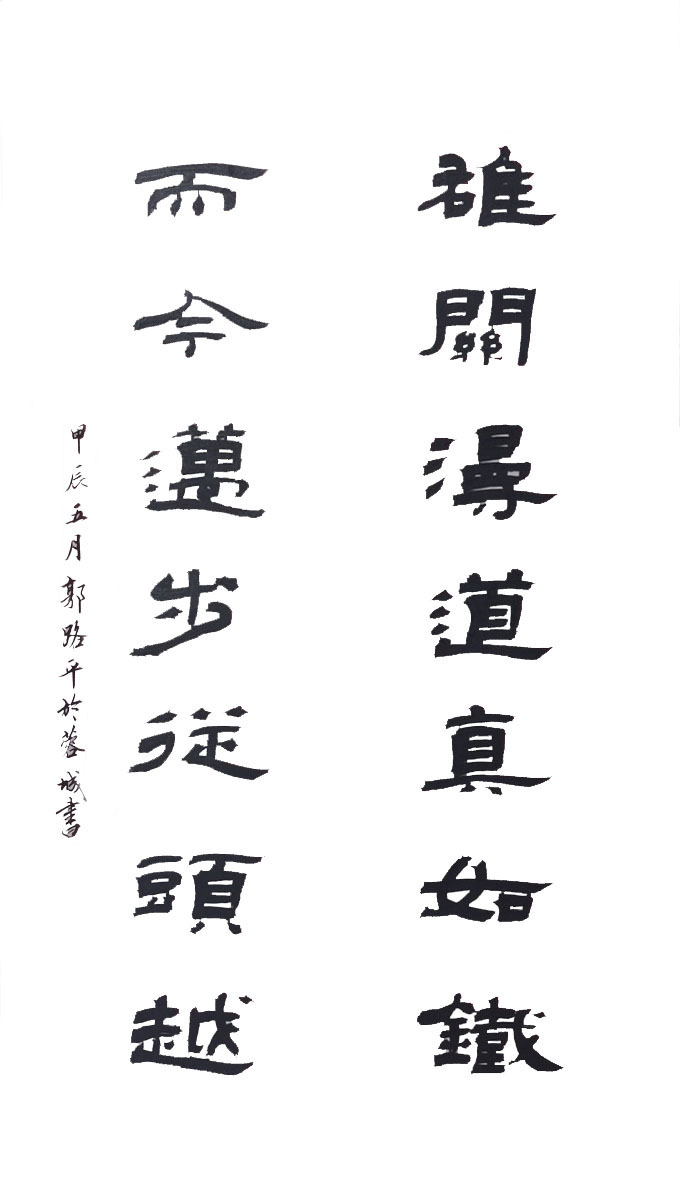 雄關漫道真如鐵
而今邁步從頭越
甲辰五月郭路平於蓉城書